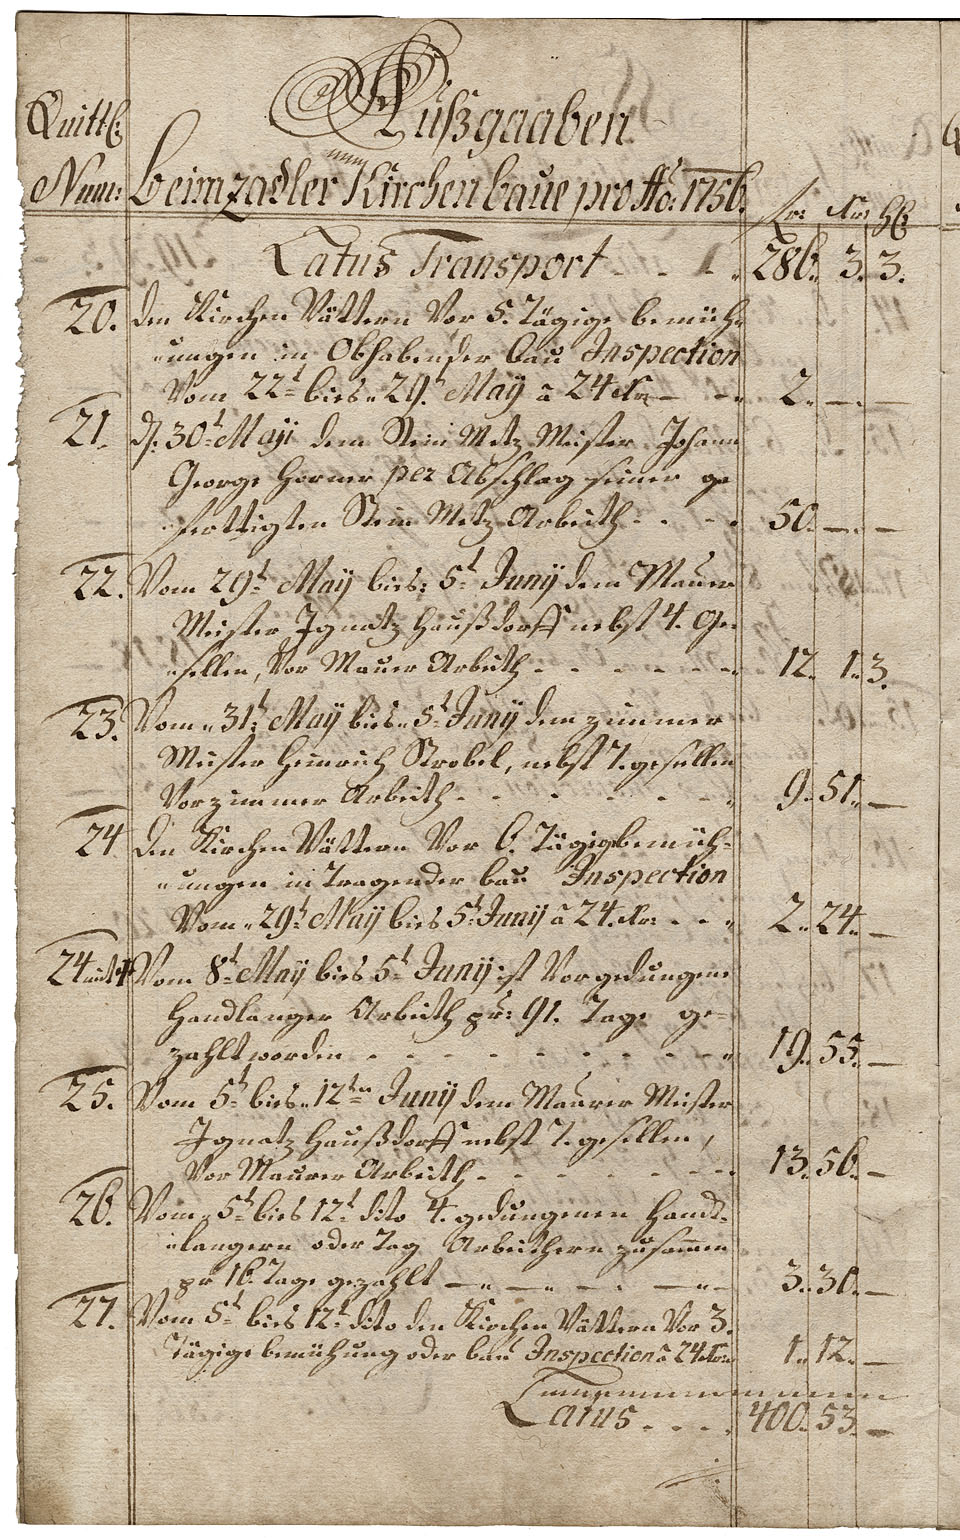 Quittß:
Außgaaben
Num: beim zadler Kirchen baue pro Aõ: 1756.
fr: Kr: hl:
Latus Transport - - - - 286. 3. 3.
20. den Kirchen Vättern Vor 5. Tägige bemüh-
ungen in Obhabender bau Inspection
Vom 22t bies 29t May â 24 Kr - - 2. — —
21. d: 30t Maji dem Stein Metz Meister Johann
George Hormer per Abschlag seiner ge
fertigten Stein Metz Arbeith - - - 50. — —
22. Vom 29t May bies: 5t Junij dem Maurer
Meister Ignatz Haußdorff nebst 4. Ge-
sellen, Vor Maurer Arbeith - - - - - - 12. 1. 3.
23. Vom 31t May bies 5t Junÿ dem zimmer
Meister Heinrich Strobel, nebst 7. gesellen
Vor zimmer Arbeith - - - - - - - 9. 51. —
24 Den Kirchen Vättern Vor 6. Tägige bemüh-
ungen in Tragender bau Inspection
Vom 29t May bies 5t Junij â 24. Kr: - - 2. 24. —
24 Vom 8t May bies 5t Junij ist Vor gedungene
Handlanger Arbeith pr: 91. Tage ge-
zahlt worden - - - - - - - - - - 19. 55. —
25. Vom 5t bies 12ten Junij dem Maurer Meister
Ignatz Haußdorff nebst 7. gesellen,
Vor Maurer Arbeith - - - - - - - 13. 56. —
26. Vom 5t bies 12t dito 4. gedungenen Handt-
langern oder Tag Arbeithern zusamen
pr 16. Tage gezahlt — — — — 3. 30. —
27. Vom 5t bies 12t dito den Kirchen Vättern Vor 3.
Tägige bemühung oder bau Inspection â 24 Kr: 1. 12. —
Latus - - - - 400. 53. —